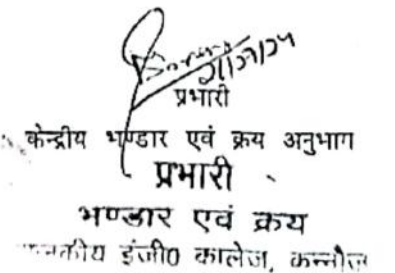 प्रभारी
केन्द्रीय भण्डार एवं क्रय अनुभाग
प्रभारी
भण्डार एवं क्रय
इंजी० कालेज, कन्नौज